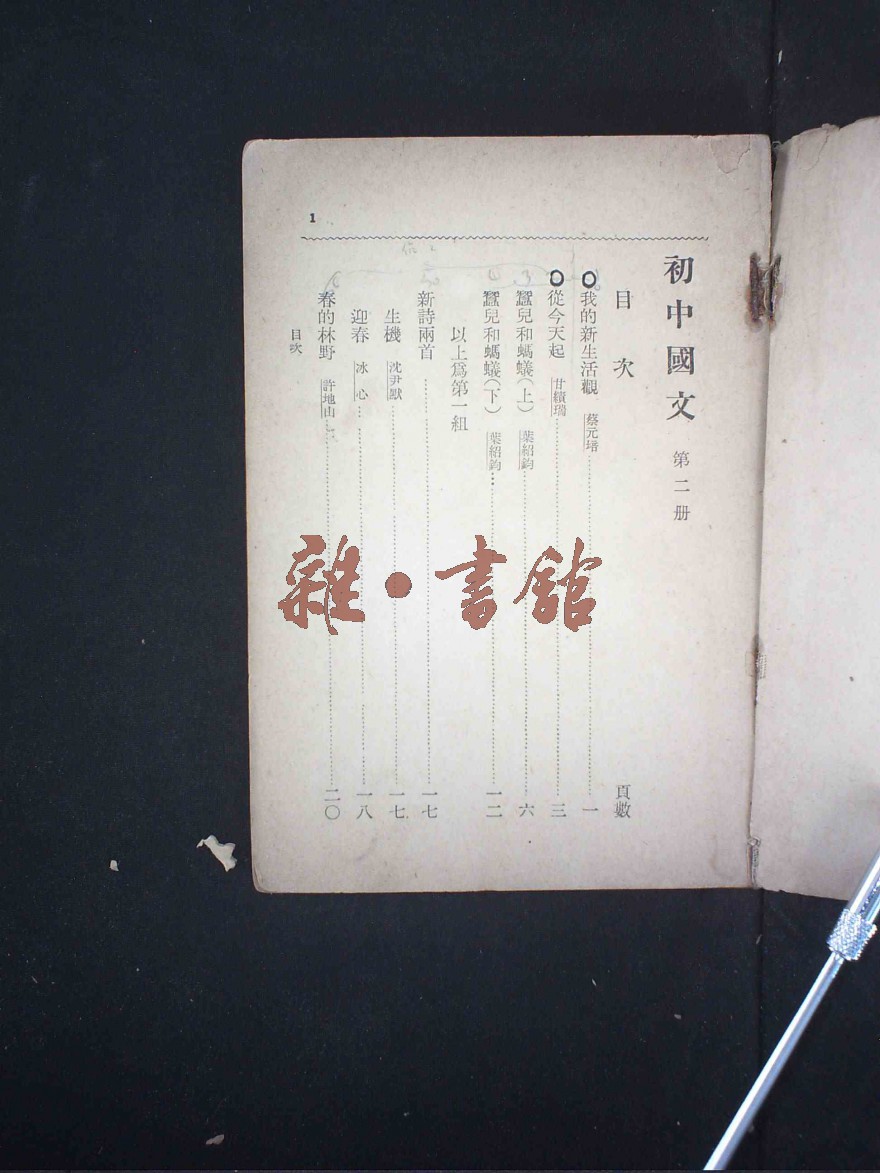 初中國文 第二册
目次 頁數
我的新生活觀 蔡元培 一
從今天起 甘績瑞 三
蠶兒和螞蟻(上) 葉紹鈞 六
蠶兒和螞蟻(下) 葉紹鈞 一二
以上爲第一組
新詩兩首 一七
生機 沈尹默 一七
迎春 冰心 一八
春的林野 許地山 二〇
目次
1
雜·書館